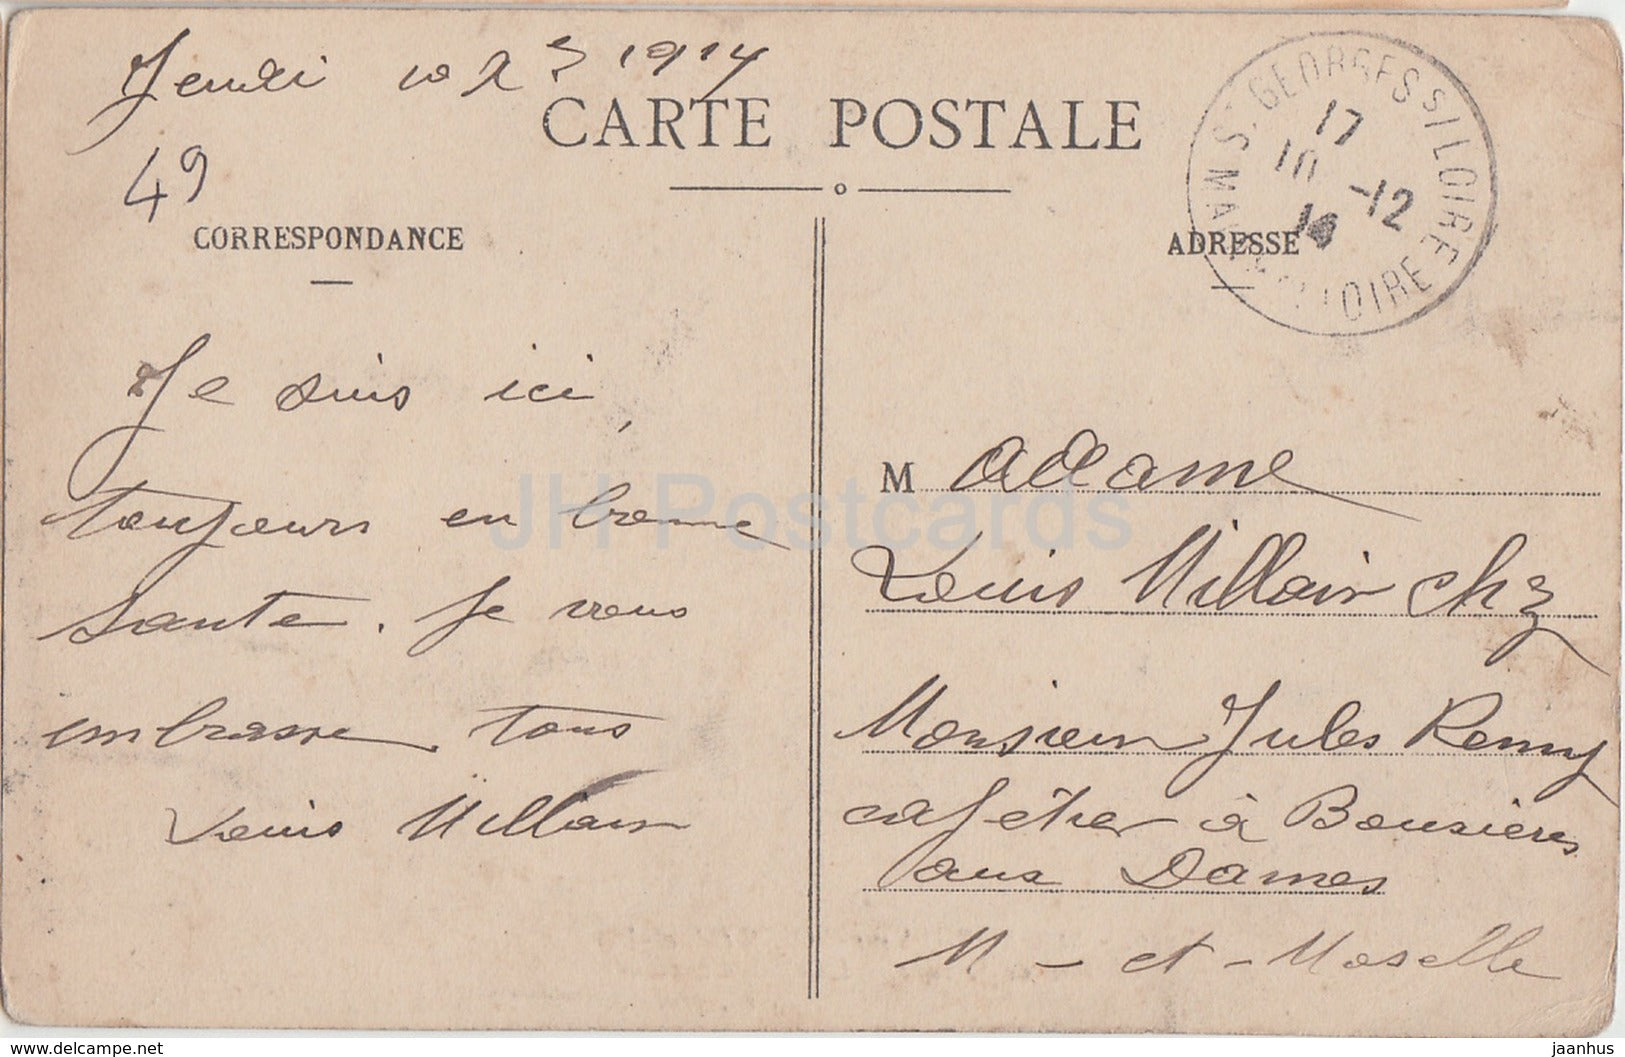 Jeudi 10 Xbre 1914
CARTE POSTALE
49
CORRESPONDANCE
ADRESSE
S. GEORGES S/LOIRE
17
10 -12
14
MAINE LOIRE
Je suis ici,
toujours en bonne
santé. Je vous
embrasse tous
Louis Millair
Madame
Louis Millair chez
Monsieur Jules Remy
cafétier à Bouxières
aux Dames
M - et - Moselle
JH Postcards
https://www.delcampe.net
jaanhus